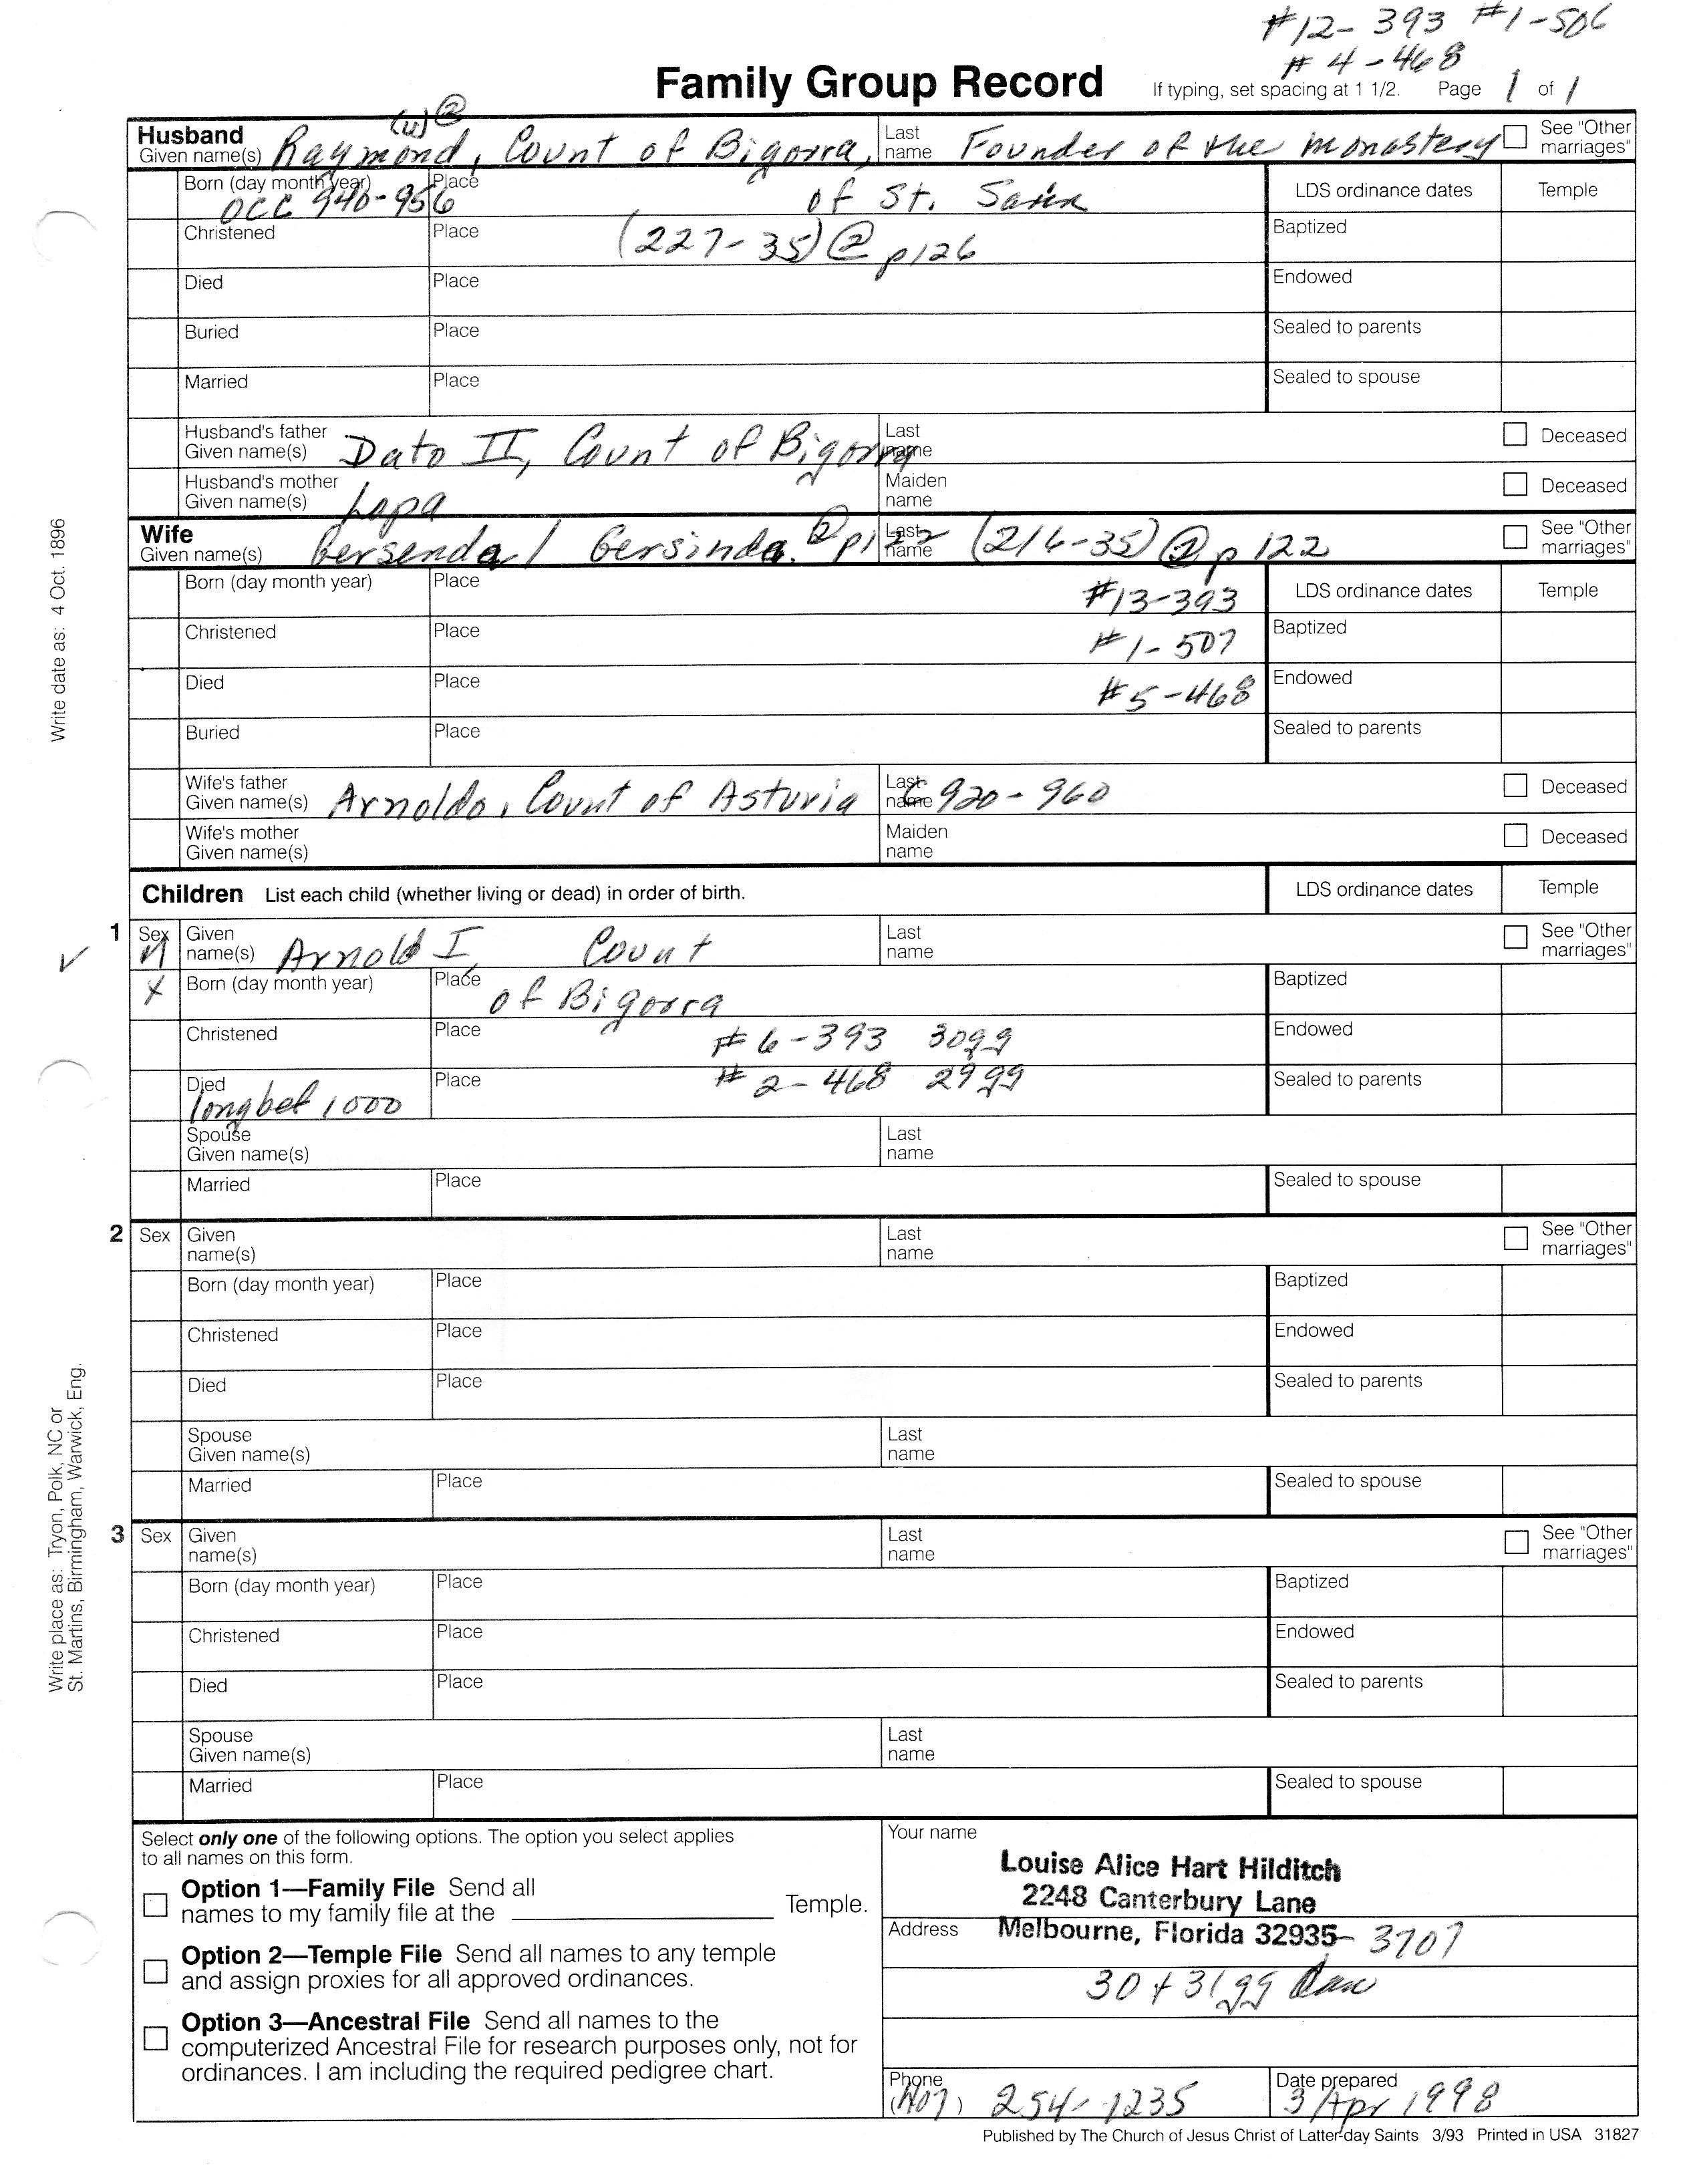 #12-393 #1-506
#4-468
Family Group Record If typing, set spacing at 1 1/2. Page 1 of 1
(u) @
Husband
Given name(s) Raymond, Count of Bigorra, Last name Founder of the monastery See "Other marriages"
Born (day month year) OCC 940-956 Place of St. LDS ordinance dates Temple
Christened Place (227-35) @ p126 Baptized
Died Place Endowed
Buried Place Sealed to parents
Married Place Sealed to spouse
Husband's father Given name(s) Dato II, Count of Bigorra Last name Deceased
Husband's mother Given name(s) Lopa Maiden name Deceased
Wife
Given name(s) Gersenda / Gersinda. @ p122 Last name (216-35) @ p 122 See "Other marriages"
Born (day month year) Place #13-393 LDS ordinance dates Temple
Christened Place #1-507 Baptized
Died Place #5-468 Endowed
Buried Place Sealed to parents
Wife's father Given name(s) Arnoldo, Count of Asturia Last name C 920-960 Deceased
Wife's mother Given name(s) Maiden name Deceased
Children List each child (whether living or dead) in order of birth. LDS ordinance dates Temple
1 Sex M Given name(s) Arnold I, Count Last name See "Other marriages"
X Born (day month year) Place of Bigorra Baptized
Christened Place #6-393 30gg Endowed
Died long bef 1000 Place #2-468 29gg Sealed to parents
Spouse Given name(s) Last name
Married Place Sealed to spouse
2 Sex Given name(s) Last name See "Other marriages"
Born (day month year) Place Baptized
Christened Place Endowed
Died Place Sealed to parents
Spouse Given name(s) Last name
Married Place Sealed to spouse
3 Sex Given name(s) Last name See "Other marriages"
Born (day month year) Place Baptized
Christened Place Endowed
Died Place Sealed to parents
Spouse Given name(s) Last name
Married Place Sealed to spouse
Select only one of the following options. The option you select applies
to all names on this form.
Option 1—Family File Send all
names to my family file at the Temple.
Option 2—Temple File Send all names to any temple
and assign proxies for all approved ordinances.
Option 3—Ancestral File Send all names to the
computerized Ancestral File for research purposes only, not for
ordinances. I am including the required pedigree chart.
Your name
Louise Alice Hart Hilditch
2248 Canterbury Lane
Address Melbourne, Florida 32935-3707
30 + 31 gg
Phone (407) 254-1235 Date prepared 3 Apr 1998
Published by The Church of Jesus Christ of Latter-day Saints 3/93 Printed in USA 31827
Write date as: 4 Oct. 1896
Write place as: Tryon, Polk, NC or
St. Martins, Birmingham, Warwick, Eng.